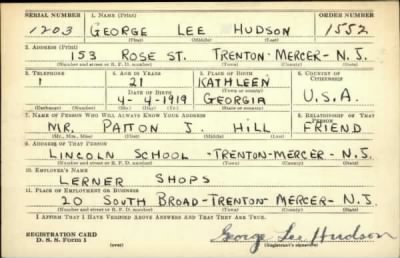 SERIAL NUMBER 1. NAME (Print) ORDER NUMBER
1203 GEORGE LEE HUDSON 1552
(First) (Middle) (Last)
2. ADDRESS (Print)
153 ROSE ST. TRENTON-MERCER-N.J.
(Number and street or R. F. D. number) (Town) (County) (State)
3. TELEPHONE 4. AGE IN YEARS 5. PLACE OF BIRTH 6. COUNTRY OF CITIZENSHIP
1 21 KATHLEEN
DATE OF BIRTH (Town or county)
4-4-1919 GEORGIA U.S.A.
(Exchange) (Number) (Mo.) (Day) (Yr.) (State or country)
7. NAME OF PERSON WHO WILL ALWAYS KNOW YOUR ADDRESS 8. RELATIONSHIP OF THAT PERSON
MR. PATTON J. HILL FRIEND
(Mr., Mrs., Miss) (First) (Middle) (Last)
9. ADDRESS OF THAT PERSON
LINCOLN SCHOOL -TRENTON-MERCER - N.J.
(Number and street or R. F. D. number) (Town) (County) (State)
10. EMPLOYER'S NAME
LERNER SHOPS
11. PLACE OF EMPLOYMENT OR BUSINESS
20 SOUTH BROAD-TRENTON MERCER-N.J.
(Number and street or R. F. D. number) (Town) (County) (State)
I AFFIRM THAT I HAVE VERIFIED ABOVE ANSWERS AND THAT THEY ARE TRUE.
REGISTRATION CARD George Lee Hudson
D. S. S. Form 1 (over) (Registrant's signature)